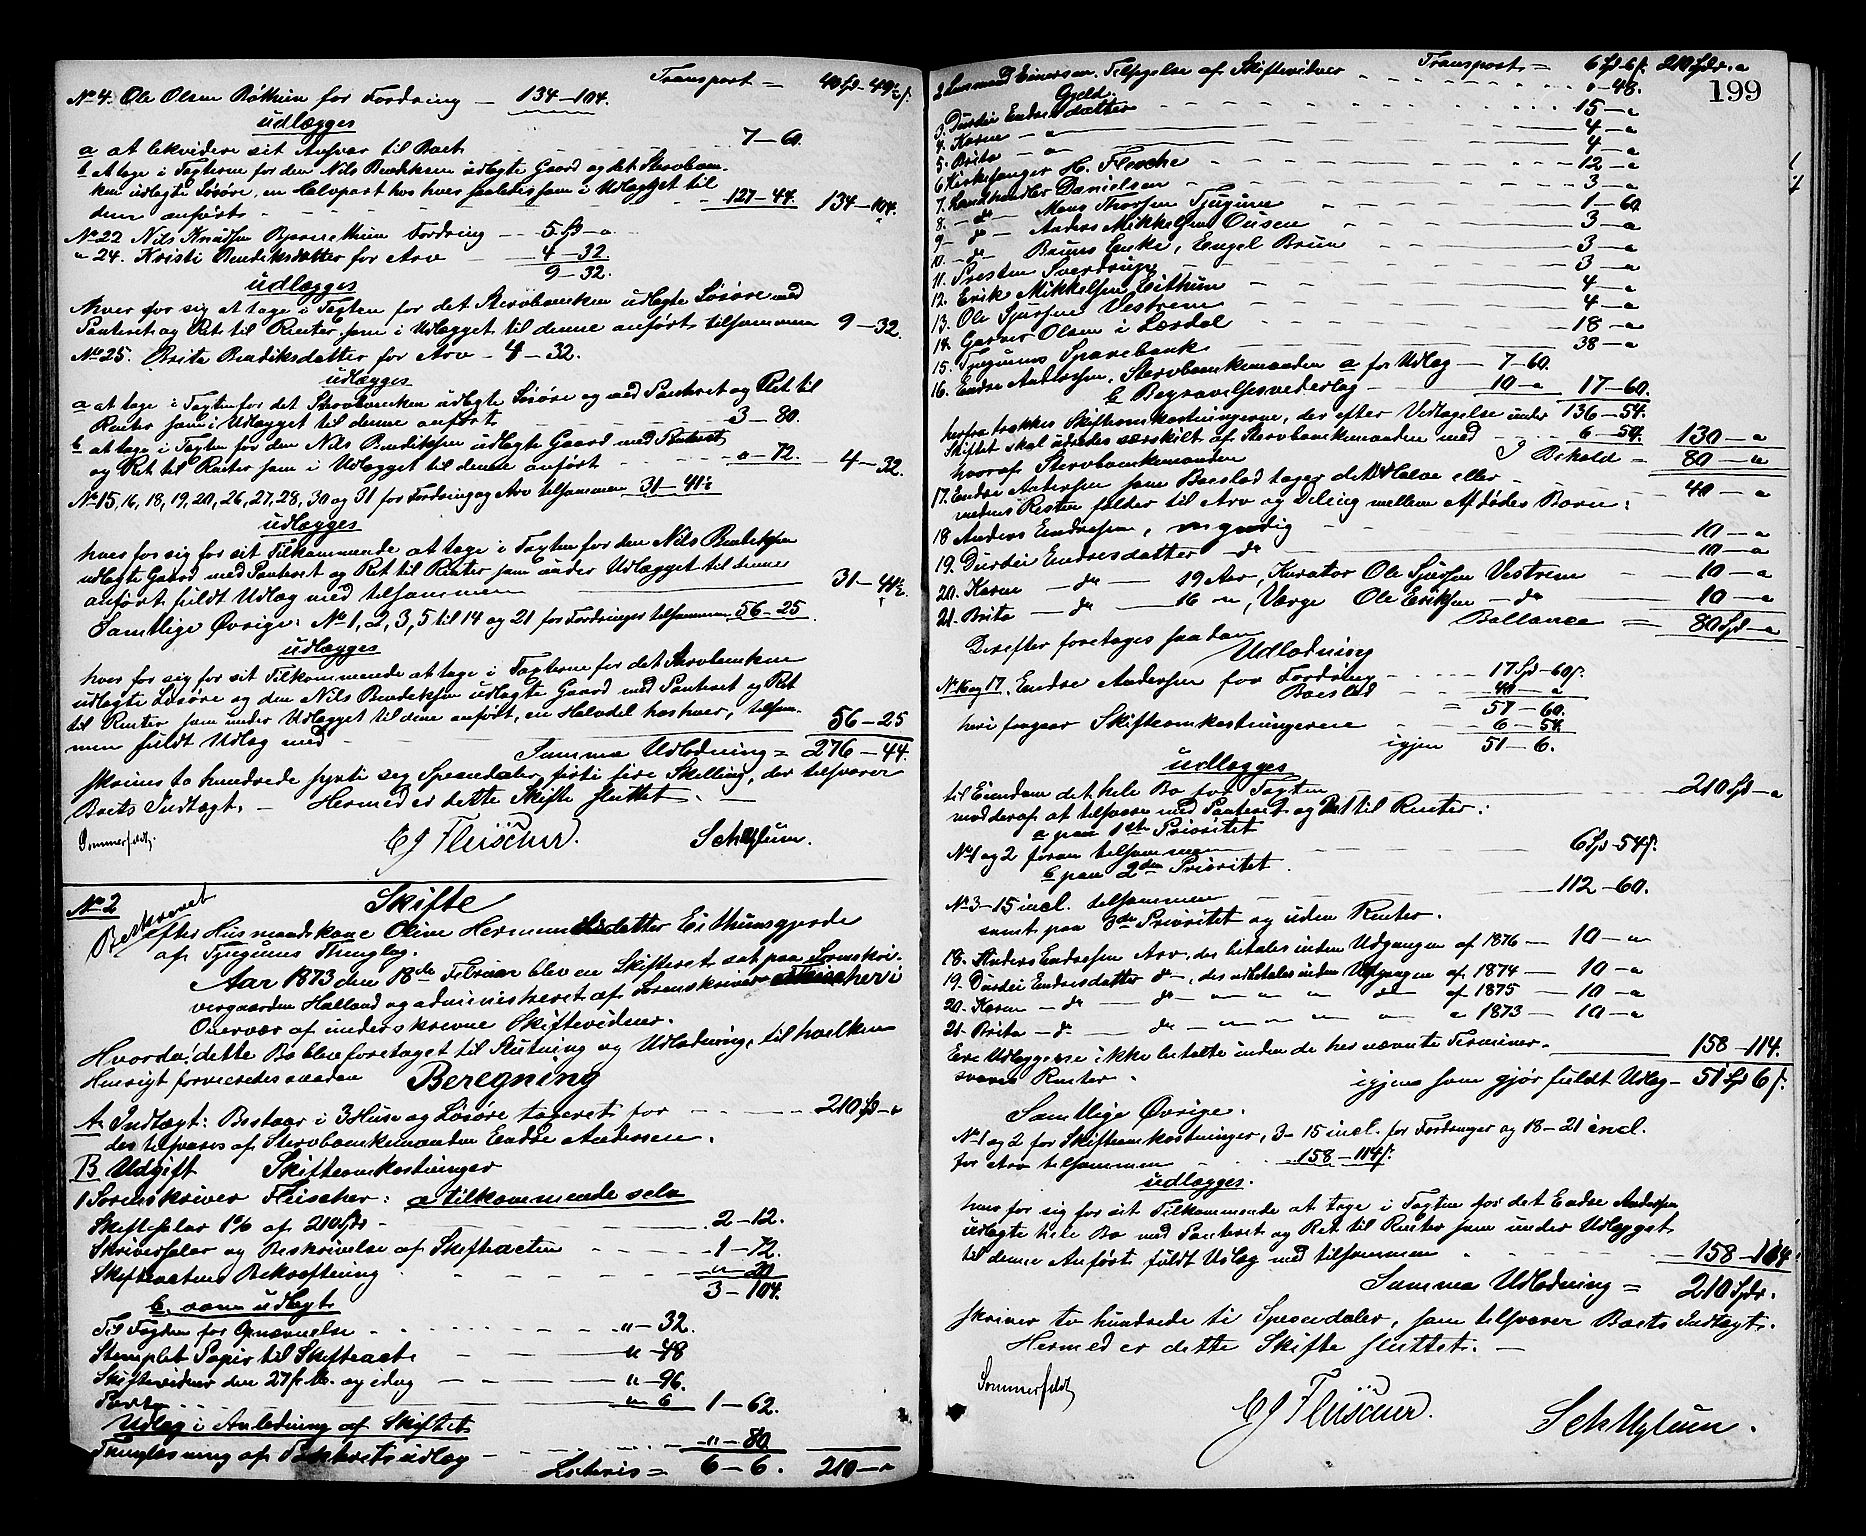 Transport = 40 Spd - 49½ s.
No 4. Ole Olsen Böthun for Fordring — 134-104.
udlægges
a at likvidere sit Ansvar til Boet 7-60.
b at tage i Taxten for den Nils Bendiksen udlagte Gaard og det Stervboenken
udlagte Løsøre, en Halvpart hos hver saaledes som i Udlægget til
dem anført 127-44. 134-104.
No 22 Nils Knudsen Fordring — 5 Spd - "
" 24. Kristi Bendiksdatter for Arv 4-32
9-32.
udlægges
hver for sig at tage i Taxten for det Stervboenken udlagte Løsøre med
Panteret og Ret til Renter som i Udlægget til denne anført tilsammen 9-32.
No 25. Brite Bendiksdatter for Arv - 4-32.
udlægges
a at tage i Taxten for det Stervboenken udlagte Løsøre og med Panteret og Ret til
Renter som i Udlægget til denne anført 3-80.
b at tage i Taxten for den Nils Bendiksen udlagte Gaard med Panteret
og Ret til Renter som i Udlægget til denne anført "-72. 4-32.
No 15, 16, 18, 19, 20, 26, 27, 28, 30 og 31 for Fordring og Arv tilsammen 31-41½
udlægges
hver for sig for sit Tilkommende at tage i Taxten for den Nils Bendiksen
udlagte Gaard med Panteret og Ret til Renter som under Udlægget til denne
anført fuldt Udlæg med tilsammen 31-41½.
Samtlige Øvrige: No 1, 2, 3, 5 til 14 og 21 for Fordringer tilsammen 56-25
udlægges
hver for sig for sit Tilkommende at tage i Taxterne for det Stervboenken
udlagte Løsøre og den Nils Bendiksen udlagte Gaard med Panteret og Ret
til Renter som under Udlægget til dem anført, en Halvdel hos hver, tilsam-
men fuldt Udlæg med 56-25
Summa Udlodning = 276-44.
skrives to hundrede sytti sex Spesiedaler firti fire Skelling, der tilsvarer
Boets Indtægt. — Hermed er dette Skifte sluttet. —
Sommerfeldt. CJ Fleischer. Sch Uglum.
No 2 Skifte
Beskrevet
efter Husmandskone Oline Hermundsdatter Eithunsgjerde
af Tjugums Thinglag.
Aar 1873 den 18de Februar blev en Skifteret sat paa Sorenskri-
vergaarden Halland og administreret af Sorenskriver Fleischer i
Overvær af underskrevne Skiftevidner.
Hvorda: dette Bo blev foretaget til Slutning og Udlodning, til hvilken
Hensigt forfærdedes saadan Beregning
A. Indtægt: Bestaar i 3 Huse og Løsøre taxeret for 210 Spd - "
der tilsvares af Stervboenkemanden Endre Andersen.
B Udgift Skifteomkostninger
1 Sorenskriver Fleischer: a tilkommende selv
Skiftesalær 1% af 210 Spdr 2-12.
Skriversalær og Beskrivelse af Skifteacten 1-72.
Skifteactens Bekræftning "-20
3-104.
b. som udlagt
Til Fogden for Opnævnelse "-32.
Stemplet Papir til Skifteact "-48
Skiftevidner den 27 f. M. og idag "-96.
Porto "-6 1-62.
Udlæg i Anledning af Skiftet
Thinglæsning af Panterets udlæg "-80
Lateris = 6-6. 210-"
199
Transport = 6 Spd - 6 s. 210 Spdr. "
2 Einersen. Tilsigelse af Skiftevidner "-48.
Gjeld.
3. Durdei Endresdatter 15-"
4. Karen — " 4-"
5. Brita — " 4-"
6 Kirkesanger H. Flesche 12-"
7. Landhandler Danielsen 3-"
8. — do — Mons Thorsen Tjugum 1-60.
9. — do — Anders Mikkelsen Ousen 3-"
10. — do — Bruns Enke, Engel Brun 3-"
11. Presten Sverdrup 3-"
12. Erik Mikkelsen Eithun 4-"
13. Ole Sjursen Vestrem 4-"
14. Garver Olsen i Lærdal 18-"
15. Tjugums Sparebank 38-"
16. Endre Andersen, Stervboenkemanden a for Udlæg — 7-60.
b Begravelsesvederlag 10-" 17-60.
136-54.
herfra trækkes Skifteomkostningerne, der efter Vedtagelse under
Skiftet skal udredes særskilt af Stervboenkemanden med 6-54. 130-"
I Behold = 80-"
hvoraf Stervboenkemanden
17. Endre Andersen som Boeslod tager det Halve eller 40-"
medens Resten falder til Arv og Deling mellem Afdødes Børn:
18 Anders Endresen, myndig 10-"
19. Durdei Endresdatter — do 10-"
20. Karen — do — 19 Aar, Kurator Ole Sjursen Vestrem 10-"
21. Brita — do — 16 ", Værge Ole Eriksen — do 10-"
Ballance = 80 Spd - "
Derefter foretages saadan
Udlodning
No 16 og 17. Endre Andersen for Fordring 17 Spd - 60 s.
Boeslod 40-"
= 57-60.
heri fragaar Skifteomkostningerne 6-54.
igjen 51-6.
udlægges
til Eiendom det hele Bo for Taxten 210 Spd - "
mod deraf at tilsvare med Panteret og Ret til Renter:
a paa 1ste Prioritet
No 1 og 2 foran tilsammen 6 Spd - 54 s.
b paa 2den Prioritet
No 3-15 incl. tilsammen 112-60.
samt paa 3de Prioritet og uden Renter.
18. Anders Endresen Arv, der betales inden Udgangen af 1876 — 10-"
19. Durdei Endresdatter do -, der udbetales inden Udgangen af 1874 — 10-"
20. Karen — do — do — " " " do af 1875 — 10-"
21. Brita — do — do — " " " " " 1873 — 10-"
Ere Udlæggerne ikke betalte inden de her nævnte Terminer. 158-114.
svares Renter.
igjen som gjør fuldt Udlæg - 51 Spd 6 s.
Samtlige Øvrige.
No 1 og 2 for Skifteomkostninger, 3-15 incl. for Fordringer og 18-21 incl.
for Arv tilsammen 158-114 s.
udlægges.
hver for sig for sit Tilkommende at tage i Taxten for det Endre Andersen
udlagte hele Bo med Panteret og Ret til Renter som under Udlægget
til denne Anført fuldt Udlæg med tilsammen 158-114.
Summa Udlodning = 210 Spdr.
skriver to hundrede ti Spesiedaler, som tilsvarer Boets Indtægt.
Hermed er dette Skifte sluttet. —
Sommerfeldt CJ Fleischer. Sch Uglum.